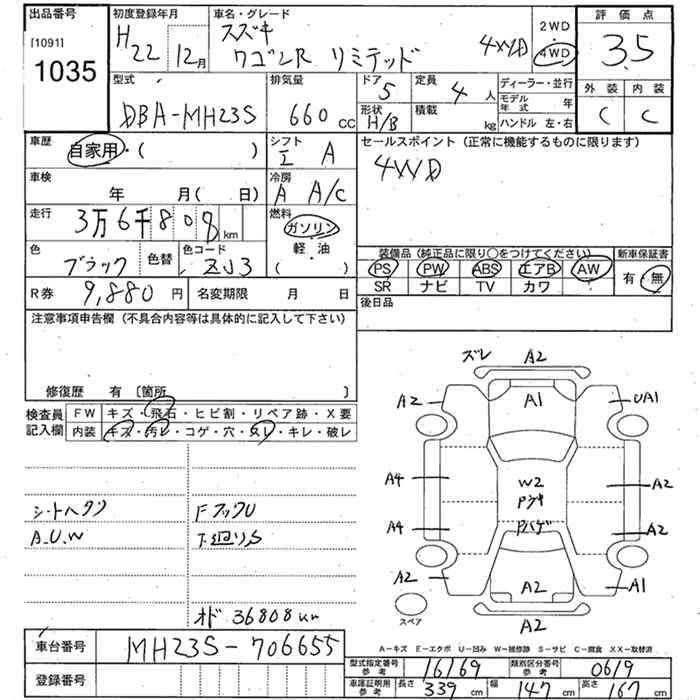 出品番号 初度登録年月 車名・グレード 評価点
[1091] 1035 H22 12月 スズキ ワゴンR リミテッド 4WD 2WD 4WD 3.5
外装 内装 C C
型式 排気量 ドア 定員 ディーラー・並行
DBA-MH23S 660 cc 5 4人 モデル年式 年
形状 H/B 積載 kg ハンドル 左・右
車歴 自家用・( ) シフト I A セールスポイント(正常に機能するものに限ります)
車検 年 月( 日) 冷房 A A/C 4WD
走行 3万6千808km 燃料 ガソリン 軽・油 ( )
色 ブラック 色替 色コード ZJ3 装備品(純正品に限り○をつけてください) 新車保証書
PS PW ABS エアB AW 有・無
SR ナビ TV カワ
R券 9,880円 名変期限 月 日 後日品
注意事項申告欄(不具合内容等は具体的に記入して下さい)
修復歴 有 〔箇所 〕
検査員記入欄 FW キズ・飛石・ヒビ割・リペア跡・X要
内装 キズ・汚レ・コゲ・穴・スレ・キレ・破レ
ズレ A2
A2 A1 UA1
A4 W2 A2
A4 A2
A2 A2 A1
スペア A2
A.U.W
オド 36808km
A-キズ E-エクボ U-凹み W-補修跡 S-サビ C-腐食 XX-取替済
車台番号 MH23S-706655
型式指定番号 参考 16169 類別区分番号 参考 0619
登録番号
車庫証明用 参考 長さ 339cm 幅 147cm 高さ 167cm